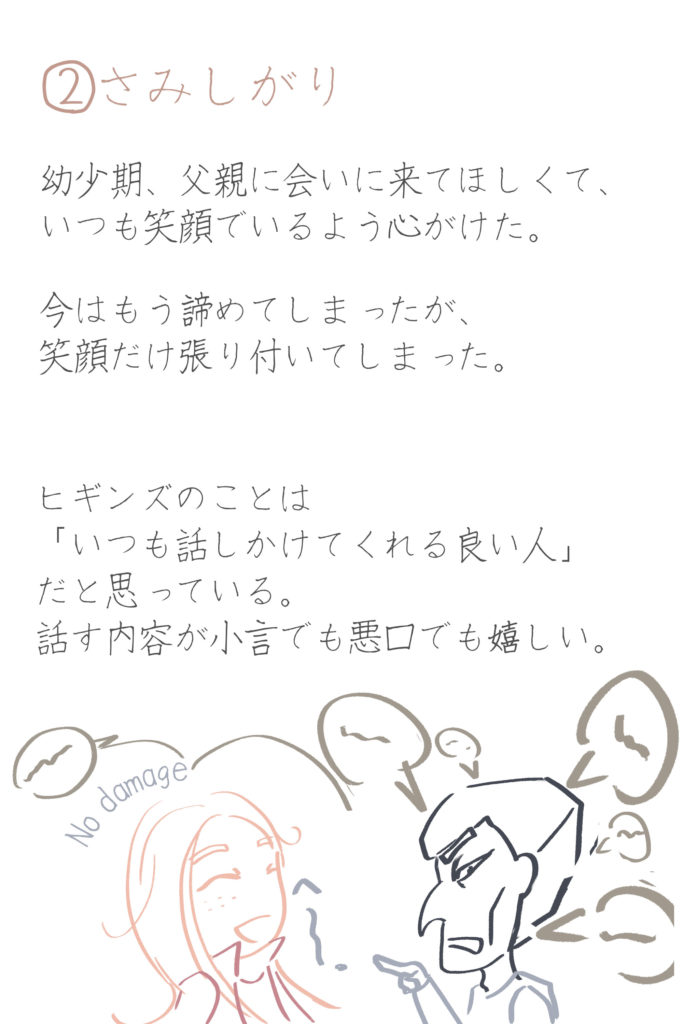 ②さみしがり
幼少期、父親に会いに来てほしくて、
いつも笑顔でいるよう心がけた。
今はもう諦めてしまったが、
笑顔だけ張り付いてしまった。
ヒギンズのことは
「いつも話しかけてくれる良い人」
だと思っている。
話す内容が小言でも悪口でも嬉しい。
No damage
へ〜.